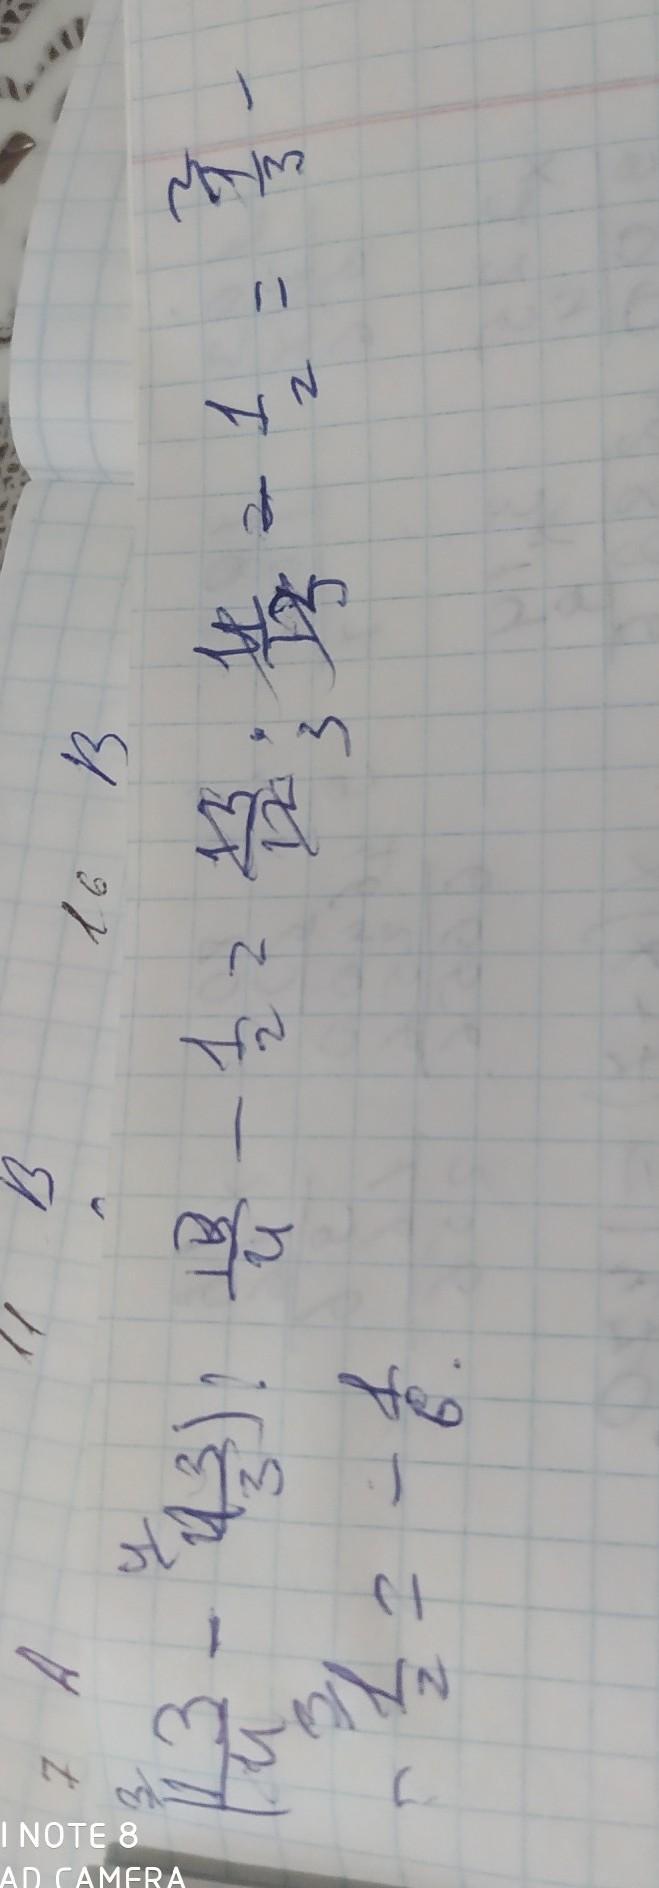 7 A 11 B 16 B
(1 3/4 - 4 3/3) : 13/4 - 1/2 = 13/12 · 4/13 - 1/2 = 1/3 -
- 1/2 = - 1/6.
I NOTE 8
AD CAMERA